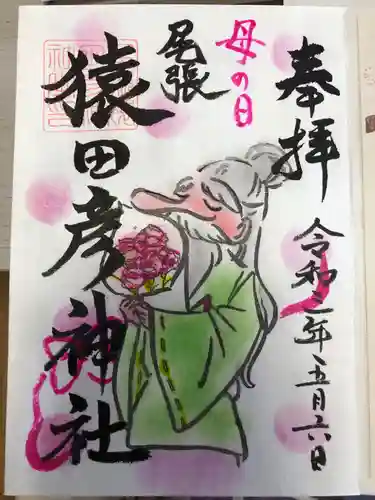 奉拝
母の日
尾張
猿田彦神社
令和三年五月六日